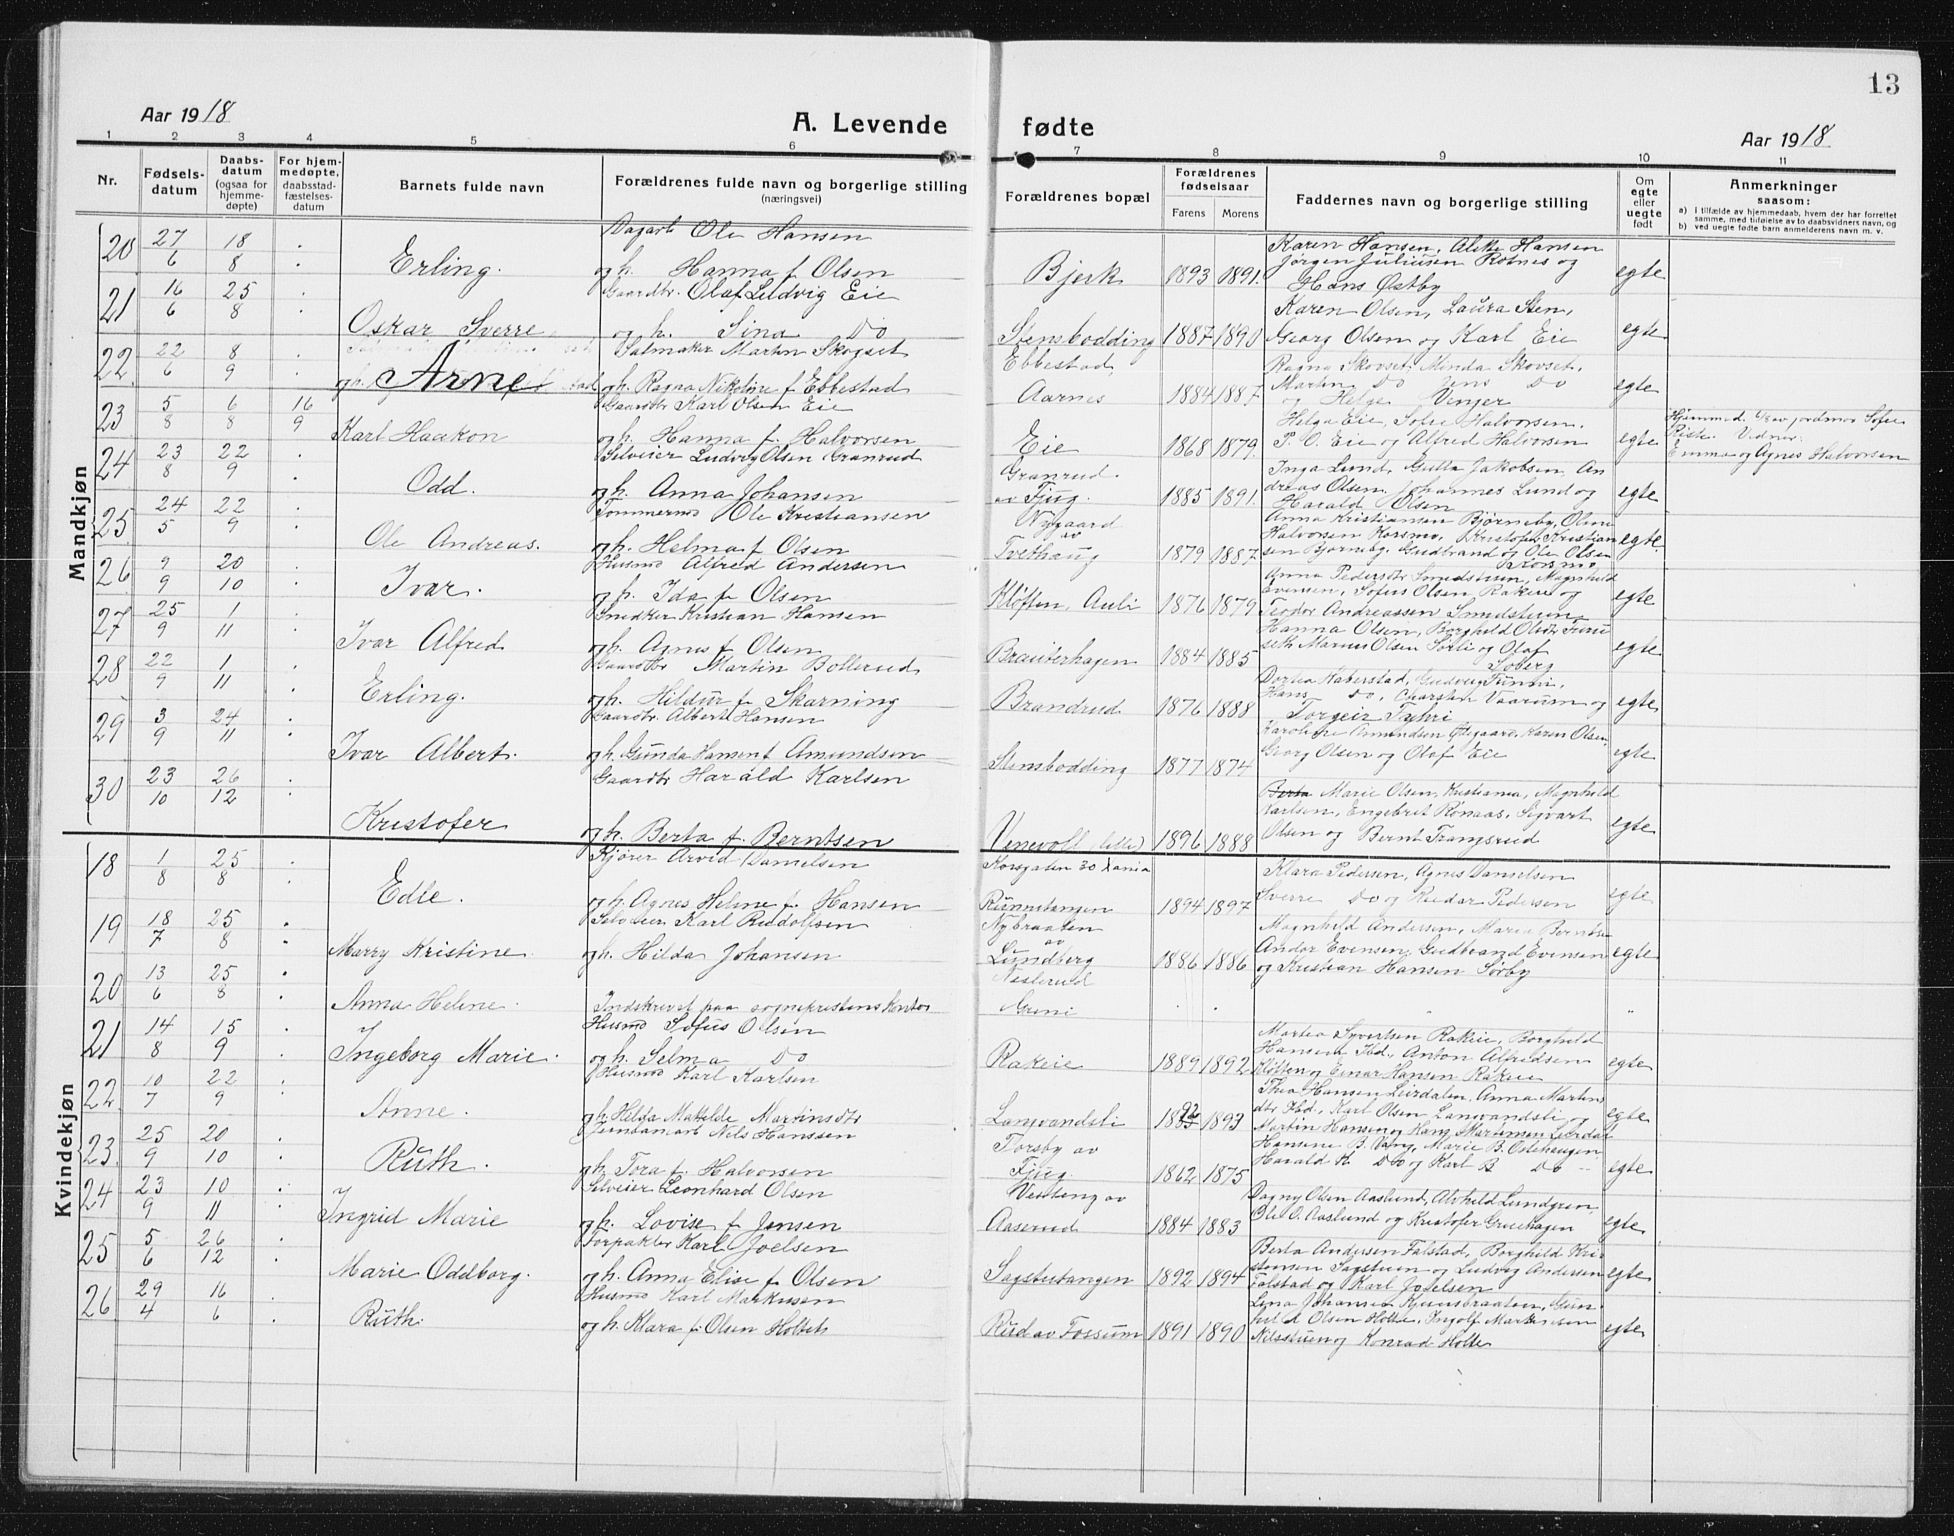 13
Aar 1918
A. Levende fødte
Aar 1918
1 2 3 4 5 6 7 8 9 10 11
Nr.
Fødsels-
datum
Daabs-
datum
(ogsaa for
hjemme-
døpte)
For hjem-
medøpte,
daabsstad-
fæstelses-
datum
Barnets fulde navn
Forældrenes fulde navn og borgerlige stilling
(næringsvei)
Forældrenes bopæl
Forældrenes
fødselsaar
Farens Morens
Faddernes navn og borgerlige stilling
Om
egte
eller
uegte
født
Anmerkninger
saasom:
a) i tilfælde av hjemmedaab, hvem der har forrettet
samme, med tilføielse av to daabsvidners navn, og
b) ved uegte fødte barn anmelderens navn m. v.
Mandkjøn
20 27/6 18/8 Erling.
Dagarb. Ole Hansen
og h. Hanna f. Olsen
Bjerk 1893 1891.
Karen Hansen, Hansen
Jørgen Juliussen Rotnes og
Hans Østby
egte
21 16/6 25/8 Oskar Sverre
Gaardbr. Olaf Ludvig Eie
og h. Sina Do
Stensbodding 1887 1890
Karen Olsen, Laura Sten,
Georg Olsen og Karl Eie
egte
22 22/6 8/9 Arne
Salmaker Martin Skogset
og h. Ragna Nikoline f. Ebbestad
Ebbestad
Aarnes 1884 1887
Ragna Skovset, Minda Skovset,
Martin Do Jens Do
og Helge Vinger
egte
23 5/8 6/8 16/9 Karl Haakon
Gaardbr Karl Olsen Eie
og h. Hanna f. Halvorsen
Eie 1868 1879.
Helga Eie, Sofie Halvorsen,
P. O. Eie og Alfred Halvorsen
egte
Hjemmed. av jordmor Sofie
Riste. Vidner:
Emma og Agnes Halvorsen
24 23/8 22/9 Odd.
Selveier Ludvig Olsen Granrud
og h. Anna Johansen
Granrud
av Fjug. 1885 1891.
Inga Lund, Gulla Jakobsen, An
dreas Olsen, Johannes Lund og
Harald Olsen
egte
25 24/5 22/9 Ole Andreas.
Tømmermd Ole Kristiansen
og h. Helma f. Olsen
Nygaard
av
Tvethaug 1879 1887.
Anna Kristiansen Bjørneby, Oline
Halvorsen Korsmo, Kristofer Kristian
sen Bjørneby, Gudbrand og Ole Olsen
Korsmo
egte.
26 9/9 20/10 Ivar.
Husmd Alfred Andersen
og h. Ida f. Olsen
Kløften, Auli 1876 1879
Anna Pedersdtr Smedstuen, Magnhild
Evensen, Sofus Olsen Rakeie og
Teodor Andreassen Smedstuen
egte
27 25/9 1/11 Ivar Alfred
Snedker Kristian Hansen
og h. Agnes f. Olsen
Brauterhagen 1884 1885
Hanna Olsen, Borghild Olsdtr Furu
seth Marius Olsen Sørli og Olaf
Soberg
egte
28 22/9 1/11 Erling.
Gaardbr Martin Bollerud
og h. Hildur f. Skarning
Brandrud 1876 1888
Dortea Haberstad, Gudveig Funni,
Hans Do, Charsten Vaarum og
Torgeir Fuhri
egte,
29 3/9 24/11 Ivar Albert.
Gaardbr. Albert Hansen
og h. Gunda Hansen f. Amundsen
Stensbodding 1877 1874
Karoline Amundsen Østgaard, Karen Olsen,
Georg Olsen og Olaf Eie
egte
30 23/10 26/12 Kristofer
Gaardbr Harald Karlsen
og h. Berta f. Berntsen
Venevoll (lille) 1896 1888
Berta Marie Olsen, Kristiania, Magnhild
Karlsen, Engebret Rønaas, Sigvart
Olsen og Bernt Trangsrud
egte
Kvindekjøn
18 1/8 25/8 Edle.
Kjører Arvid Danielsen
og h. Agnes Helene f. Hansen
Korsgaten 30 Xania
Runnistangen 1894 1897
Klara Pedersen, Agnes Danielsen
Sverre Do og Reidar Pedersen
egte
19 18/7 25/8 Marry Kristine
Selveier Karl Rudolfsen
og h. Hilda Johansen
Nybraaten
av
Lundberg 1886 1886
Magnhild Andersen, Maria Berntse
Andor Evensen, Gudbrand Evensen
og Kristian Hansen Sørby
egte
20 13/6 25/8 Anna Helene.
Indskrevet paa sogneprestens kontor
Neslerud
Greni
21 14/8 15/9 Ingeborg Marie.
Husmd Sofus Olsen
og h. Selma Do
Rakeie 1889 1892
Martea Syvertsen Rakeie, Borghild
Hansen Ibd., Anton Alfredsen
Kløften og Einar Hansen Rakeie
egte
22 10/7 22/9 Anne.
Husmd Karl Karlsen
og h. Helga Matilde Martinsdtr
Langvandsli 1892 1893
Thea Hansen Leirdalen, Anna Martins
dtr Ibd., Karl Olsen Langvandsli og
Martin Hansen og Hans Martinsen Leirdal
egte
23 25/9 20/10 Ruth.
Jernbanearb Nils Hanssen
og h. Tora f. Halvorsen
Torsby av
Fjug 1862 1875
Hansine B. Vang, Marie B. Ostehaugen
Harald K Do og Karl B Do
egte
24 23/9 10/11 Ingrid Marie
Selveier Leonhard Olsen
og h. Lovise f. Jensen
Venteng av
Aaserud 1884 1883
Dagny Olsen Aaslund, Alvhild Lundgren,
Ole O. Aaslund og Kristofer Gruehagen
egte
25 5/6 26/12 Marie Oddborg.
Torpakter Karl Joelsen
og h. Anna Elise f. Olsen
Sagstutangen 1892 1894
Berta Andersen Falstad, Borghild Kri-
stensen Sagstuen og Ludvig Andersen
Falstad og Karl Joelsen
egte
26 29/4 16/6 Ruth.
Husmd Karl Markusen
og h. Klara f. Olsen Holtets
Rud av Fossum 1891 1890
Lina Johansen Kjensbraaten, Gun
hild Olsen Holte, Ingolf Markussen
Nilsstuen og Konrad Holte
egte